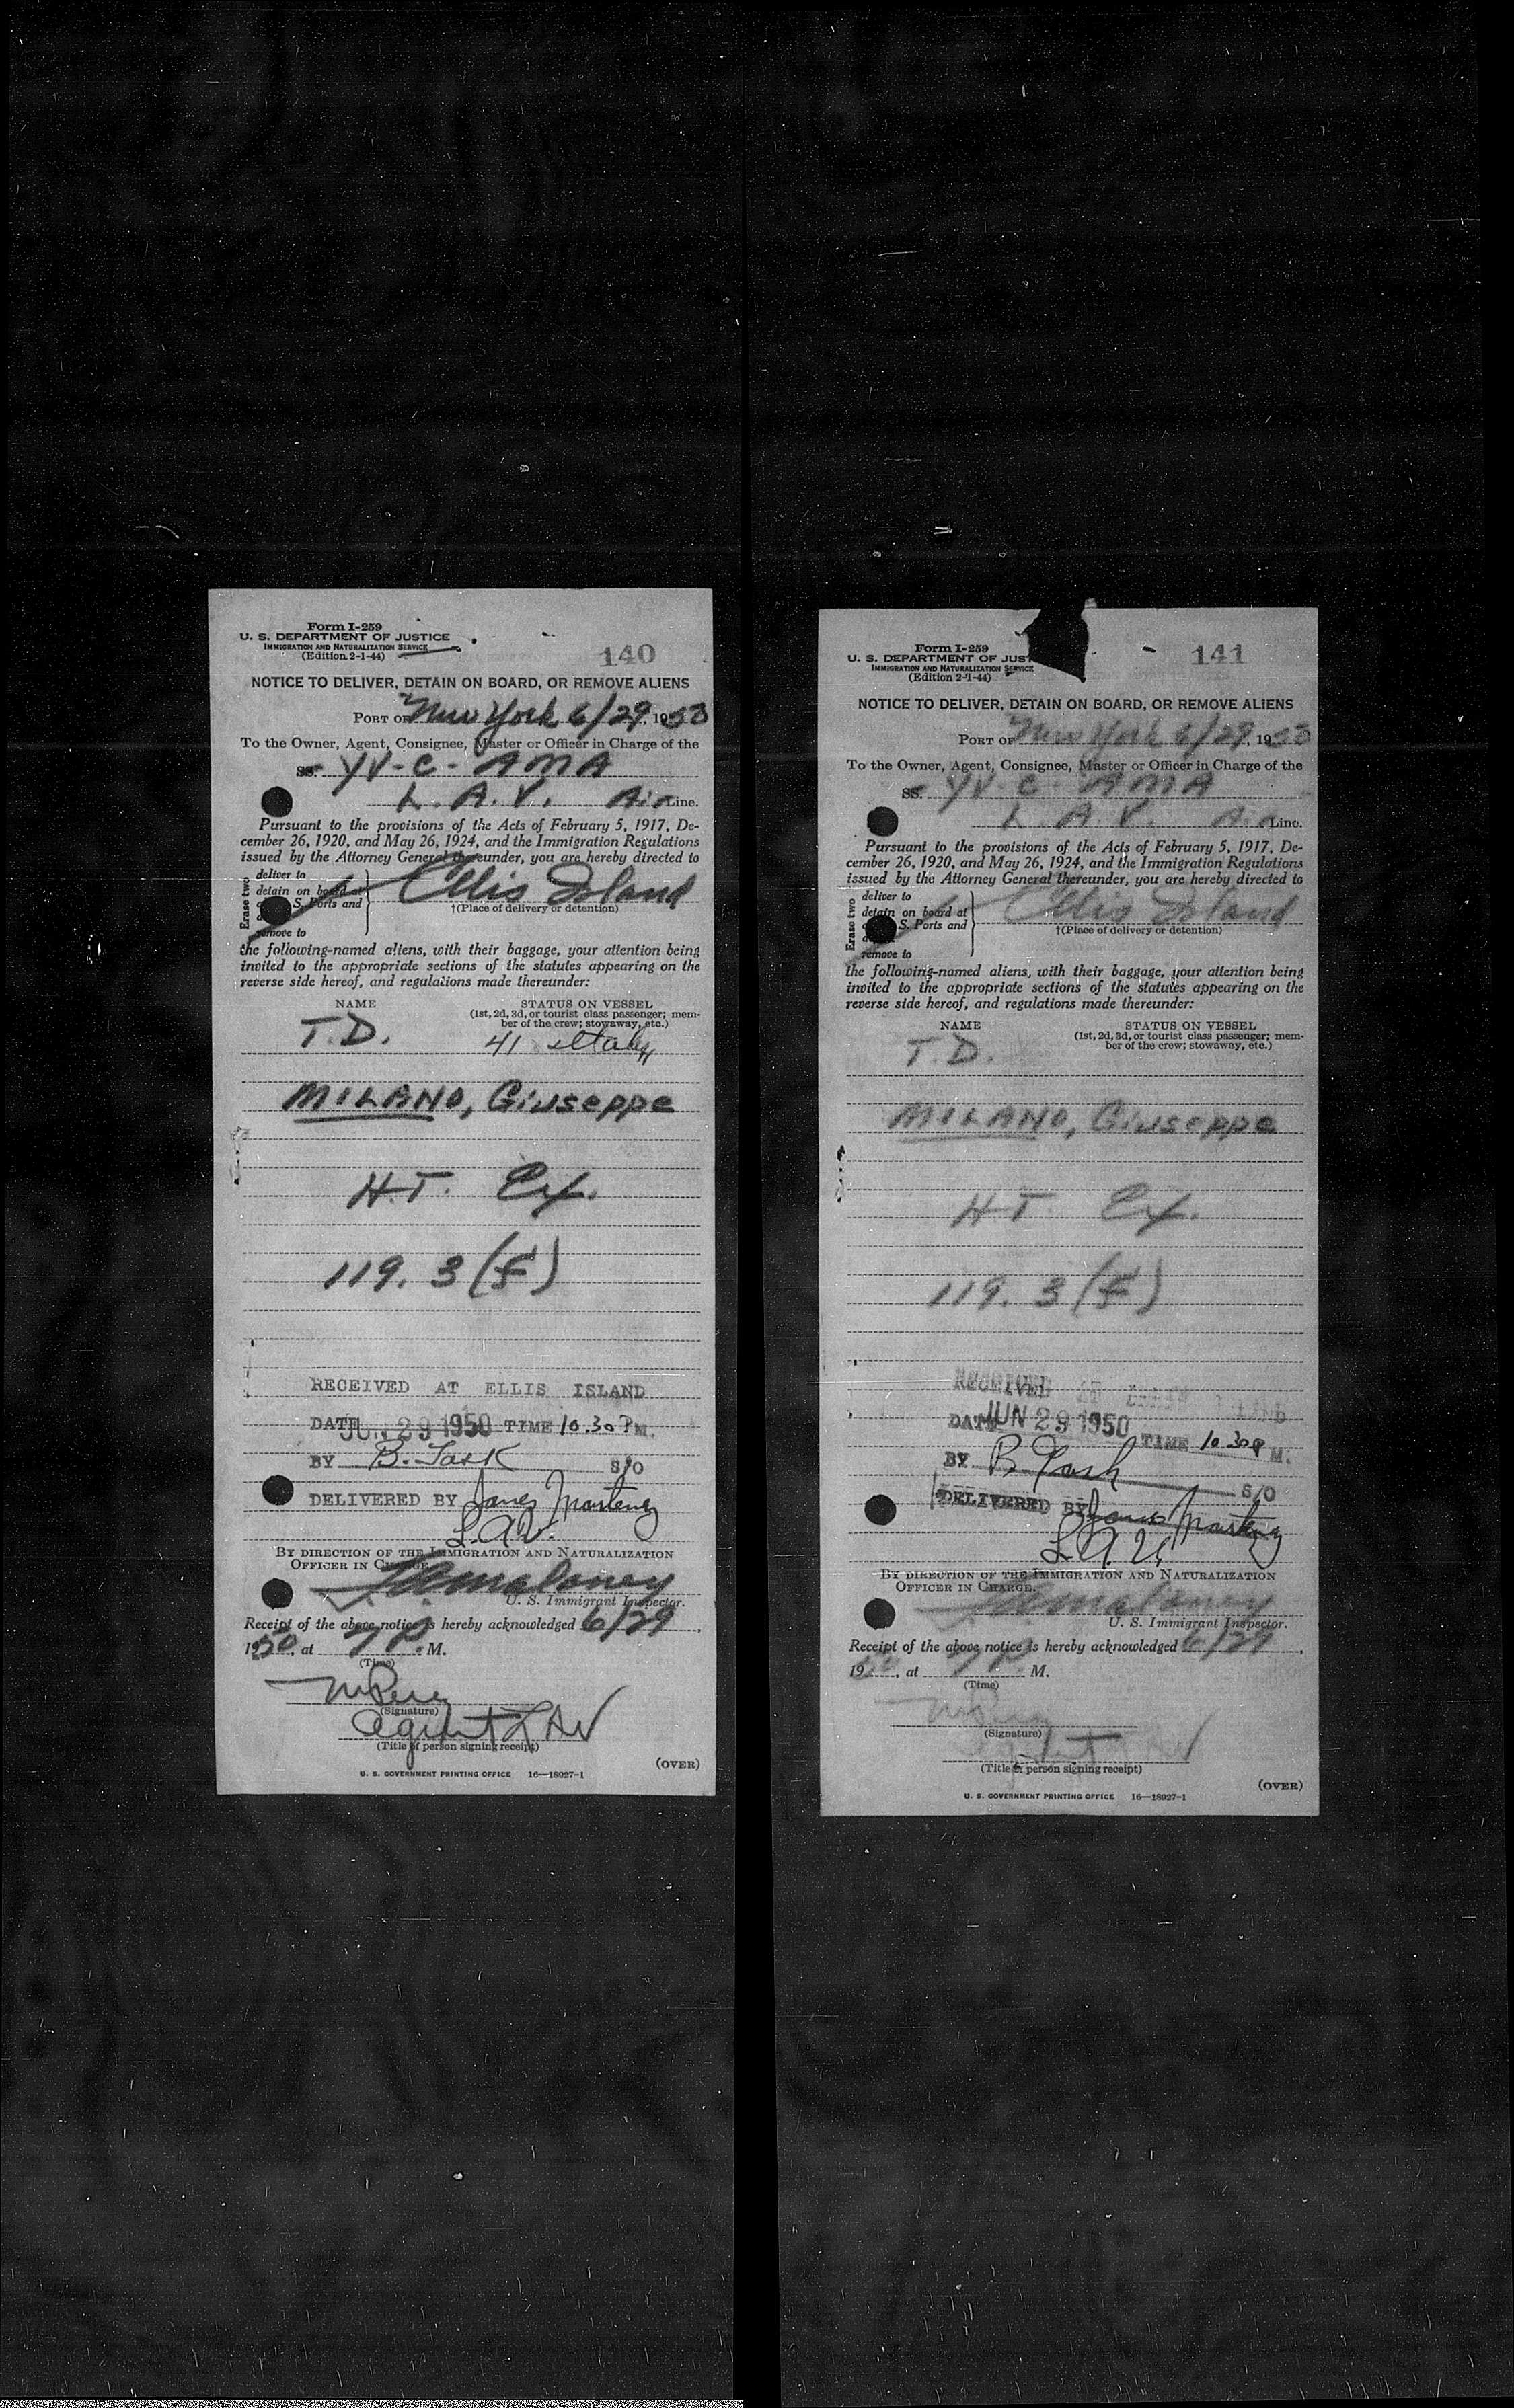 Form I-259
U. S. DEPARTMENT OF JUSTICE
IMMIGRATION AND NATURALIZATION SERVICE
(Edition 2-1-44)
140
NOTICE TO DELIVER, DETAIN ON BOARD, OR REMOVE ALIENS
PORT OF New York 6/29, 1950
To the Owner, Agent, Consignee, Master or Officer in Charge of the
SS. YV-C-AMA
L. A. V. Air Line.
Pursuant to the provisions of the Acts of February 5, 1917, De-
cember 26, 1920, and May 26, 1924, and the Immigration Regulations
issued by the Attorney General thereunder, you are hereby directed to
Erase two
deliver to
detain on board at
S. Ports and
remove to
Ellis Island
†(Place of delivery or detention)
the following-named aliens, with their baggage, your attention being
invited to the appropriate sections of the statutes appearing on the
reverse side hereof, and regulations made thereunder:
NAME
STATUS ON VESSEL
(1st, 2d, 3d, or tourist class passenger; mem-
ber of the crew; stowaway, etc.)
T.D. 41 Italy
MILANO, Giuseppe
H.T. Ex.
119. 3 (f)
RECEIVED AT ELLIS ISLAND
DATE JUN 29 1950 TIME 10.30 P M.
BY B. Task S/O
DELIVERED BY James
L.A.V.
BY DIRECTION OF THE IMMIGRATION AND NATURALIZATION
OFFICER IN CHARGE.
Maloney
U. S. Immigrant Inspector.
Receipt of the above notice is hereby acknowledged 6/29,
1950, at 7 P. M.
(Time)
(Signature)
agent LAV
(Title of person signing receipt)
(OVER)
U. S. GOVERNMENT PRINTING OFFICE 16—18027-1
Form I-259
U. S. DEPARTMENT OF JUST
IMMIGRATION AND NATURALIZATION SERVICE
(Edition 2-1-44)
141
NOTICE TO DELIVER, DETAIN ON BOARD, OR REMOVE ALIENS
PORT OF New York 6/29, 1950
To the Owner, Agent, Consignee, Master or Officer in Charge of the
SS. YV-C-AMA
L. A. V. Air Line.
Pursuant to the provisions of the Acts of February 5, 1917, De-
cember 26, 1920, and May 26, 1924, and the Immigration Regulations
issued by the Attorney General thereunder, you are hereby directed to
Erase two
deliver to
detain on board at
S. Ports and
remove to
Ellis Island
†(Place of delivery or detention)
the following-named aliens, with their baggage, your attention being
invited to the appropriate sections of the statutes appearing on the
reverse side hereof, and regulations made thereunder:
NAME
STATUS ON VESSEL
(1st, 2d, 3d, or tourist class passenger; mem-
ber of the crew; stowaway, etc.)
T.D.
MILANO, Giuseppe
H.T. Ex.
119. 3 (f)
RECEIVED
DATE JUN 29 1950 TIME 10 30 P M.
BY B. S/O
DELIVERED BY James
L.A.V.
BY DIRECTION OF THE IMMIGRATION AND NATURALIZATION
OFFICER IN CHARGE.
Maloney
U. S. Immigrant Inspector.
Receipt of the above notice is hereby acknowledged 6/29,
1950, at 7 P. M.
(Time)
(Signature)
(Title of person signing receipt)
(OVER)
U. S. GOVERNMENT PRINTING OFFICE 16—18027-1